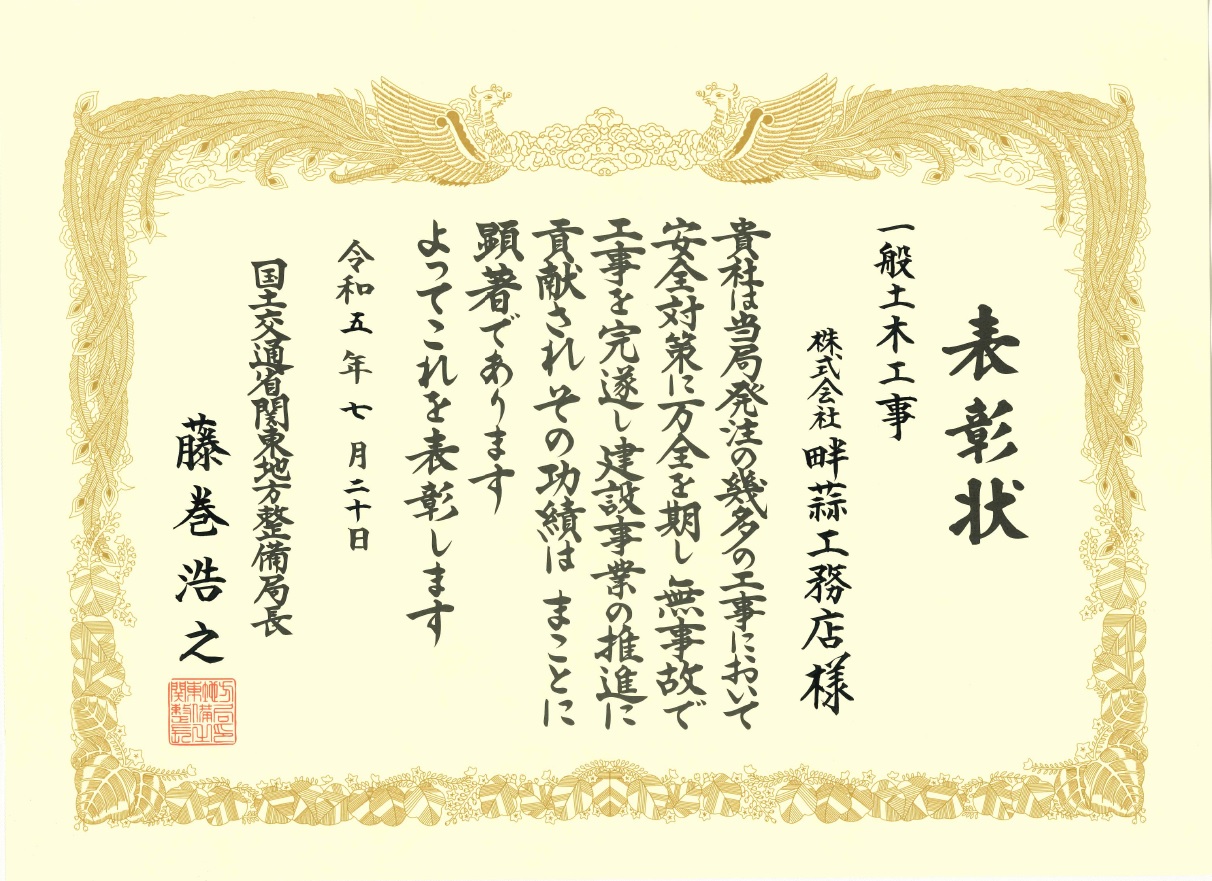 表彰状
一般土木工事
株式会社 畔蒜工務店様
貴社は当局発注の幾多の工事において
安全対策に万全を期し 無事故で
工事を完遂し 建設事業の推進に
貢献され その功績は まことに
顕著であります
よってこれを表彰します
令和五年七月二十日
国土交通省関東地方整備局長
藤巻浩之